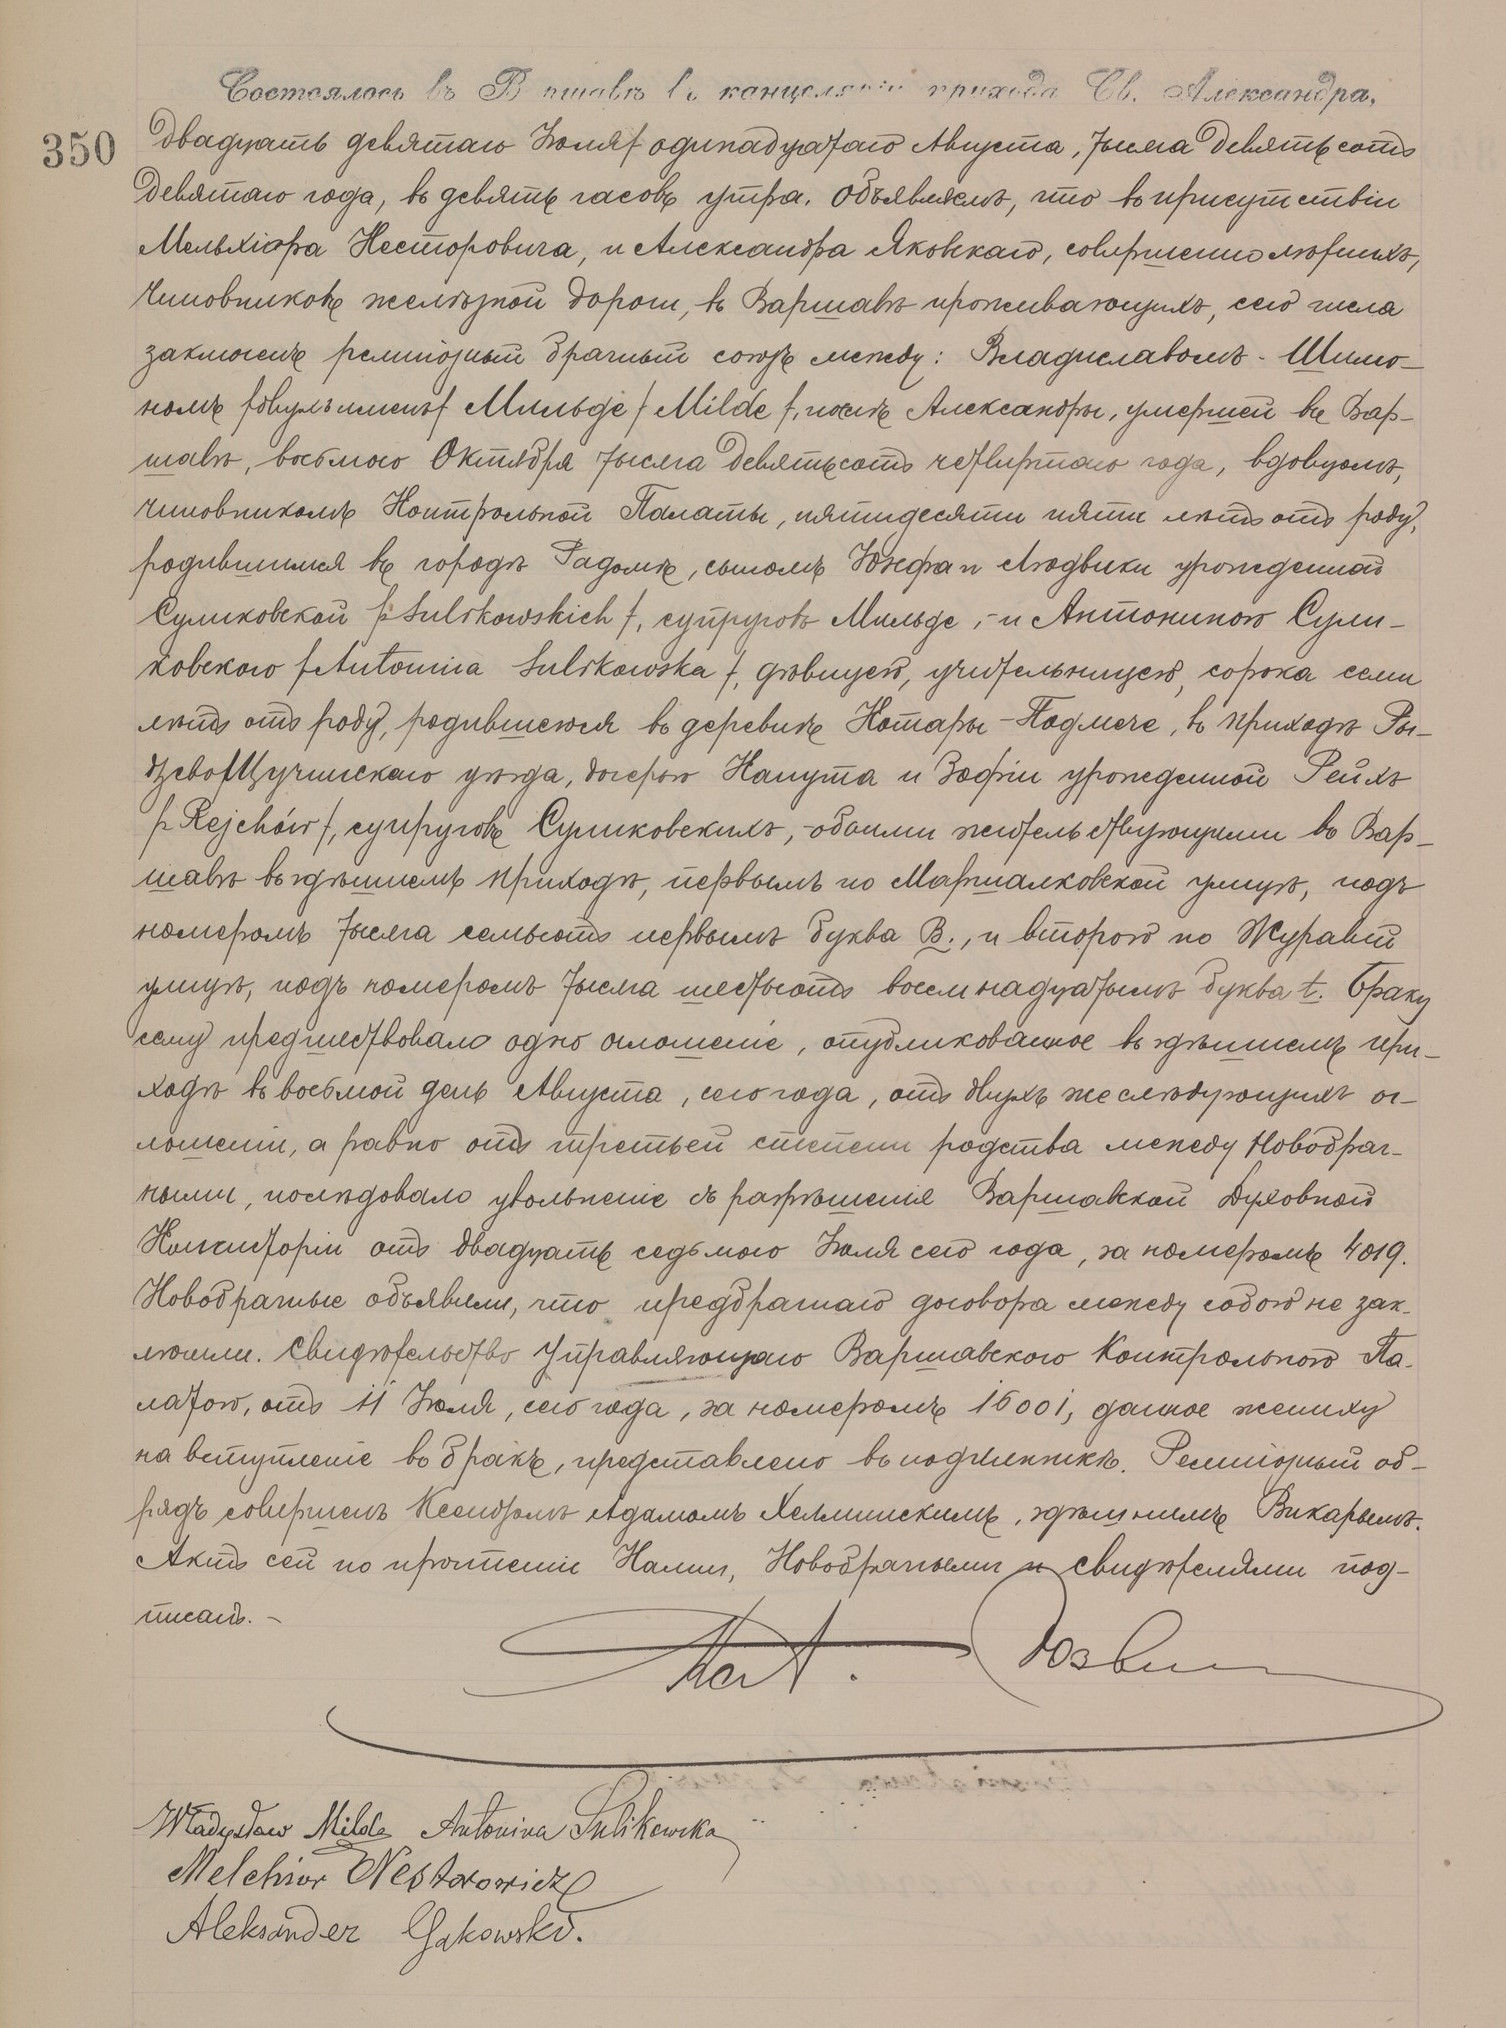 Состоялось въ Варшавѣ въ канцеляріи прихода Св. Александра,
350
двадцать девятаго Іюля / одинадцатаго Августа, тысяча девятьсотъ
девятаго года, въ девять часовъ утра. Объявляемъ, что въ присутствіи
Мельхіора Несторовича, и Александра Яковскаго, совершеннолѣтнихъ,
чиновниковъ желѣзной дороги, въ Варшавѣ проживающихъ, сего числа
заключенъ религіозный брачный союзъ между: Владиславомъ-Шимо-
номъ /двухъ именъ/ Мильде / Milde /, послѣ Александры, умершей въ Вар-
шавѣ, восьмого Октября тысяча девятьсотъ четвертаго года, вдовцомъ,
чиновникомъ Контрольной Палаты, пятидесяти пяти лѣтъ отъ роду,
родившимся въ городѣ Радомѣ, сыномъ Іозефа и Людвики урожденной
Суликовской / Sulikowskich /, супруговъ Мильде, - и Антониною Сули-
ковскою / Antonina Sulikowska /, дѣвицею, учительницею, сорока семи
лѣтъ отъ роду, родившеюся въ деревнѣ Котары-Подлече, въ приходѣ Ры-
дзево / Щучинскаго уѣзда, дочерью Канута и Зофіи урожденной Рейхъ
/ Rejchów /, супруговъ Суликовскихъ, - обоими жительствующими въ Вар-
шавѣ въ здѣшнемъ приходѣ, первымъ по Маршалковской улицѣ, подъ
номеромъ тысяча семьсотъ первымъ буква В., и второю по Журавій
улицѣ, подъ номеромъ тысяча шестьсотъ восемнадцатымъ буква t. Браку
сему предшествовало одно оглошеніе, опубликованное въ здѣшнемъ при-
ходѣ въ восьмой день Августа, сего года, отъ двухъ же слѣдующихъ ог-
лошеніи, а равно отъ третьей степени родства между Новобрач-
ными, послѣдовало увольненіе съ разрѣшенія Варшавской Духовной
Консисторіи отъ двадцать седьмого Іюля сего года, за номеромъ 4019.
Новобрачные объявили, что предбрачнаго договора между собою не зак-
лючили. Свидѣтельство Управляющаго Варшавскою Контрольною Па-
латою, отъ 11 Іюля, сего года, за номеромъ 15001, данное жениху
на вступленіе въ бракъ, представлено въ подлинникѣ. Религіозный об-
рядъ совершенъ Ксендзомъ Адамомъ Хелминскимъ, здѣшнимъ Викарымъ.
Актъ сей по прочтеніи Нами, Новобрачными и свидѣтелями под-
писанъ. -
Władysław Milde Antonina Sulikowska
Melchior Nestorowicz
Aleksander Jakowski.